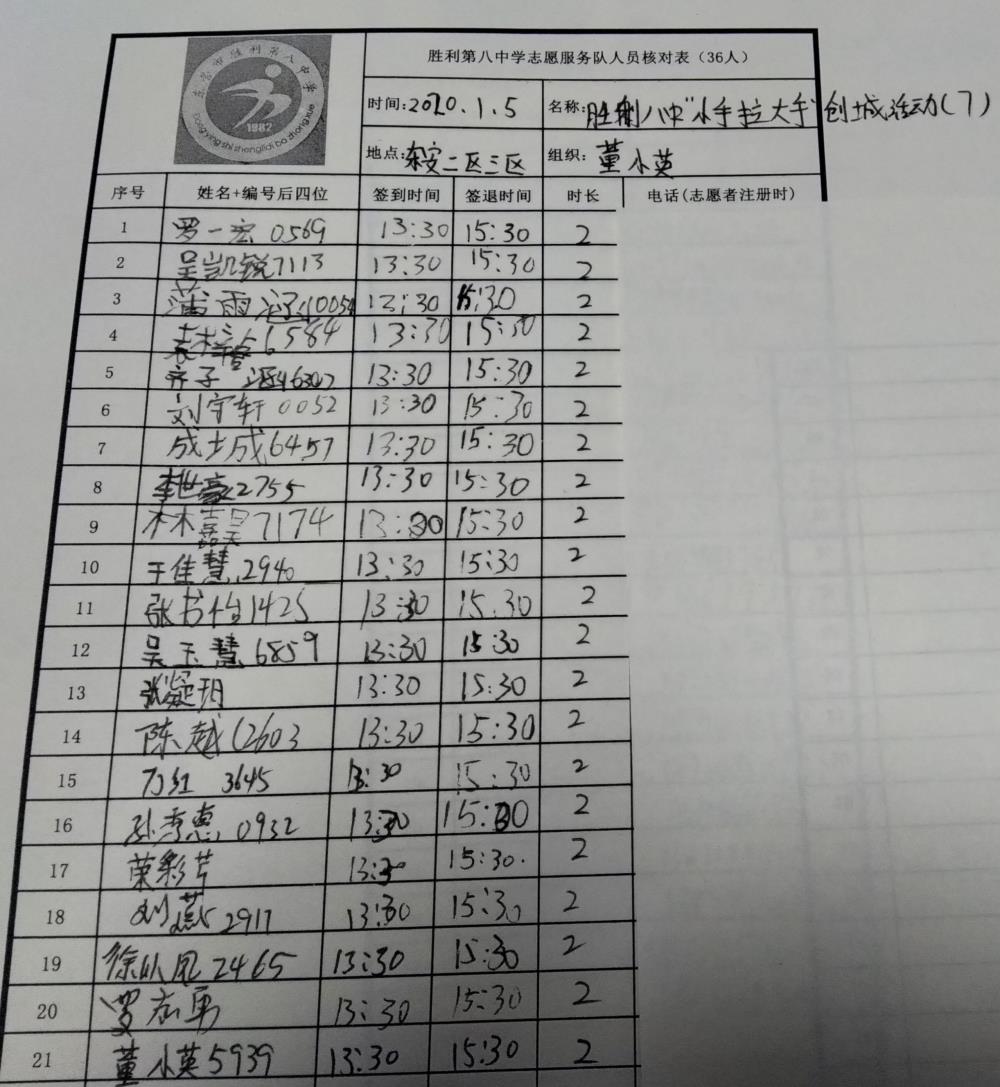 东营市胜利第八中学
1982
dong ying shi shenglidi ba zhongxue
胜利第八中学志愿服务队人员核对表（36人）
时间:2020.1.5 名称:胜利八中"小手拉大手"创城活动(7)
地点:东安二区三区 组织:董小英
序号 姓名+编号后四位 签到时间 签退时间 时长 电话(志愿者注册时)
1 罗一宏 0569 13:30 15:30 2
2 吴凯锐7113 13:30 15:30 2
3 蒲雨涵10054 13:30 15:30 2
4 袁梓 6584 13:30 15:30 2
5 齐子 13:30 15:30 2
6 刘宇轩 0052 13:30 15:30 2
7 成士成6457 13:30 15:30 2
8 李世豪2755 13:30 15:30 2
9 林嘉昊7174 13:30 15:30 2
10 于佳慧2940 13:30 15:30 2
11 张书怡1425 13:30 15:30 2
12 吴玉慧6859 13:30 15:30 2
13 张凝玥 13:30 15:30 2
14 陈越 2603 13:30 15:30 2
15 万红 3645 13:30 15:30 2
16 孙秀惠 0932 13:30 15:30 2
17 荣彩芹 13:30 15:30 2
18 刘燕 2917 13:30 15:30 2
19 徐 凤2465 13:30 15:30 2
20 罗宏勇 13:30 15:30 2
21 董小英5939 13:30 15:30 2